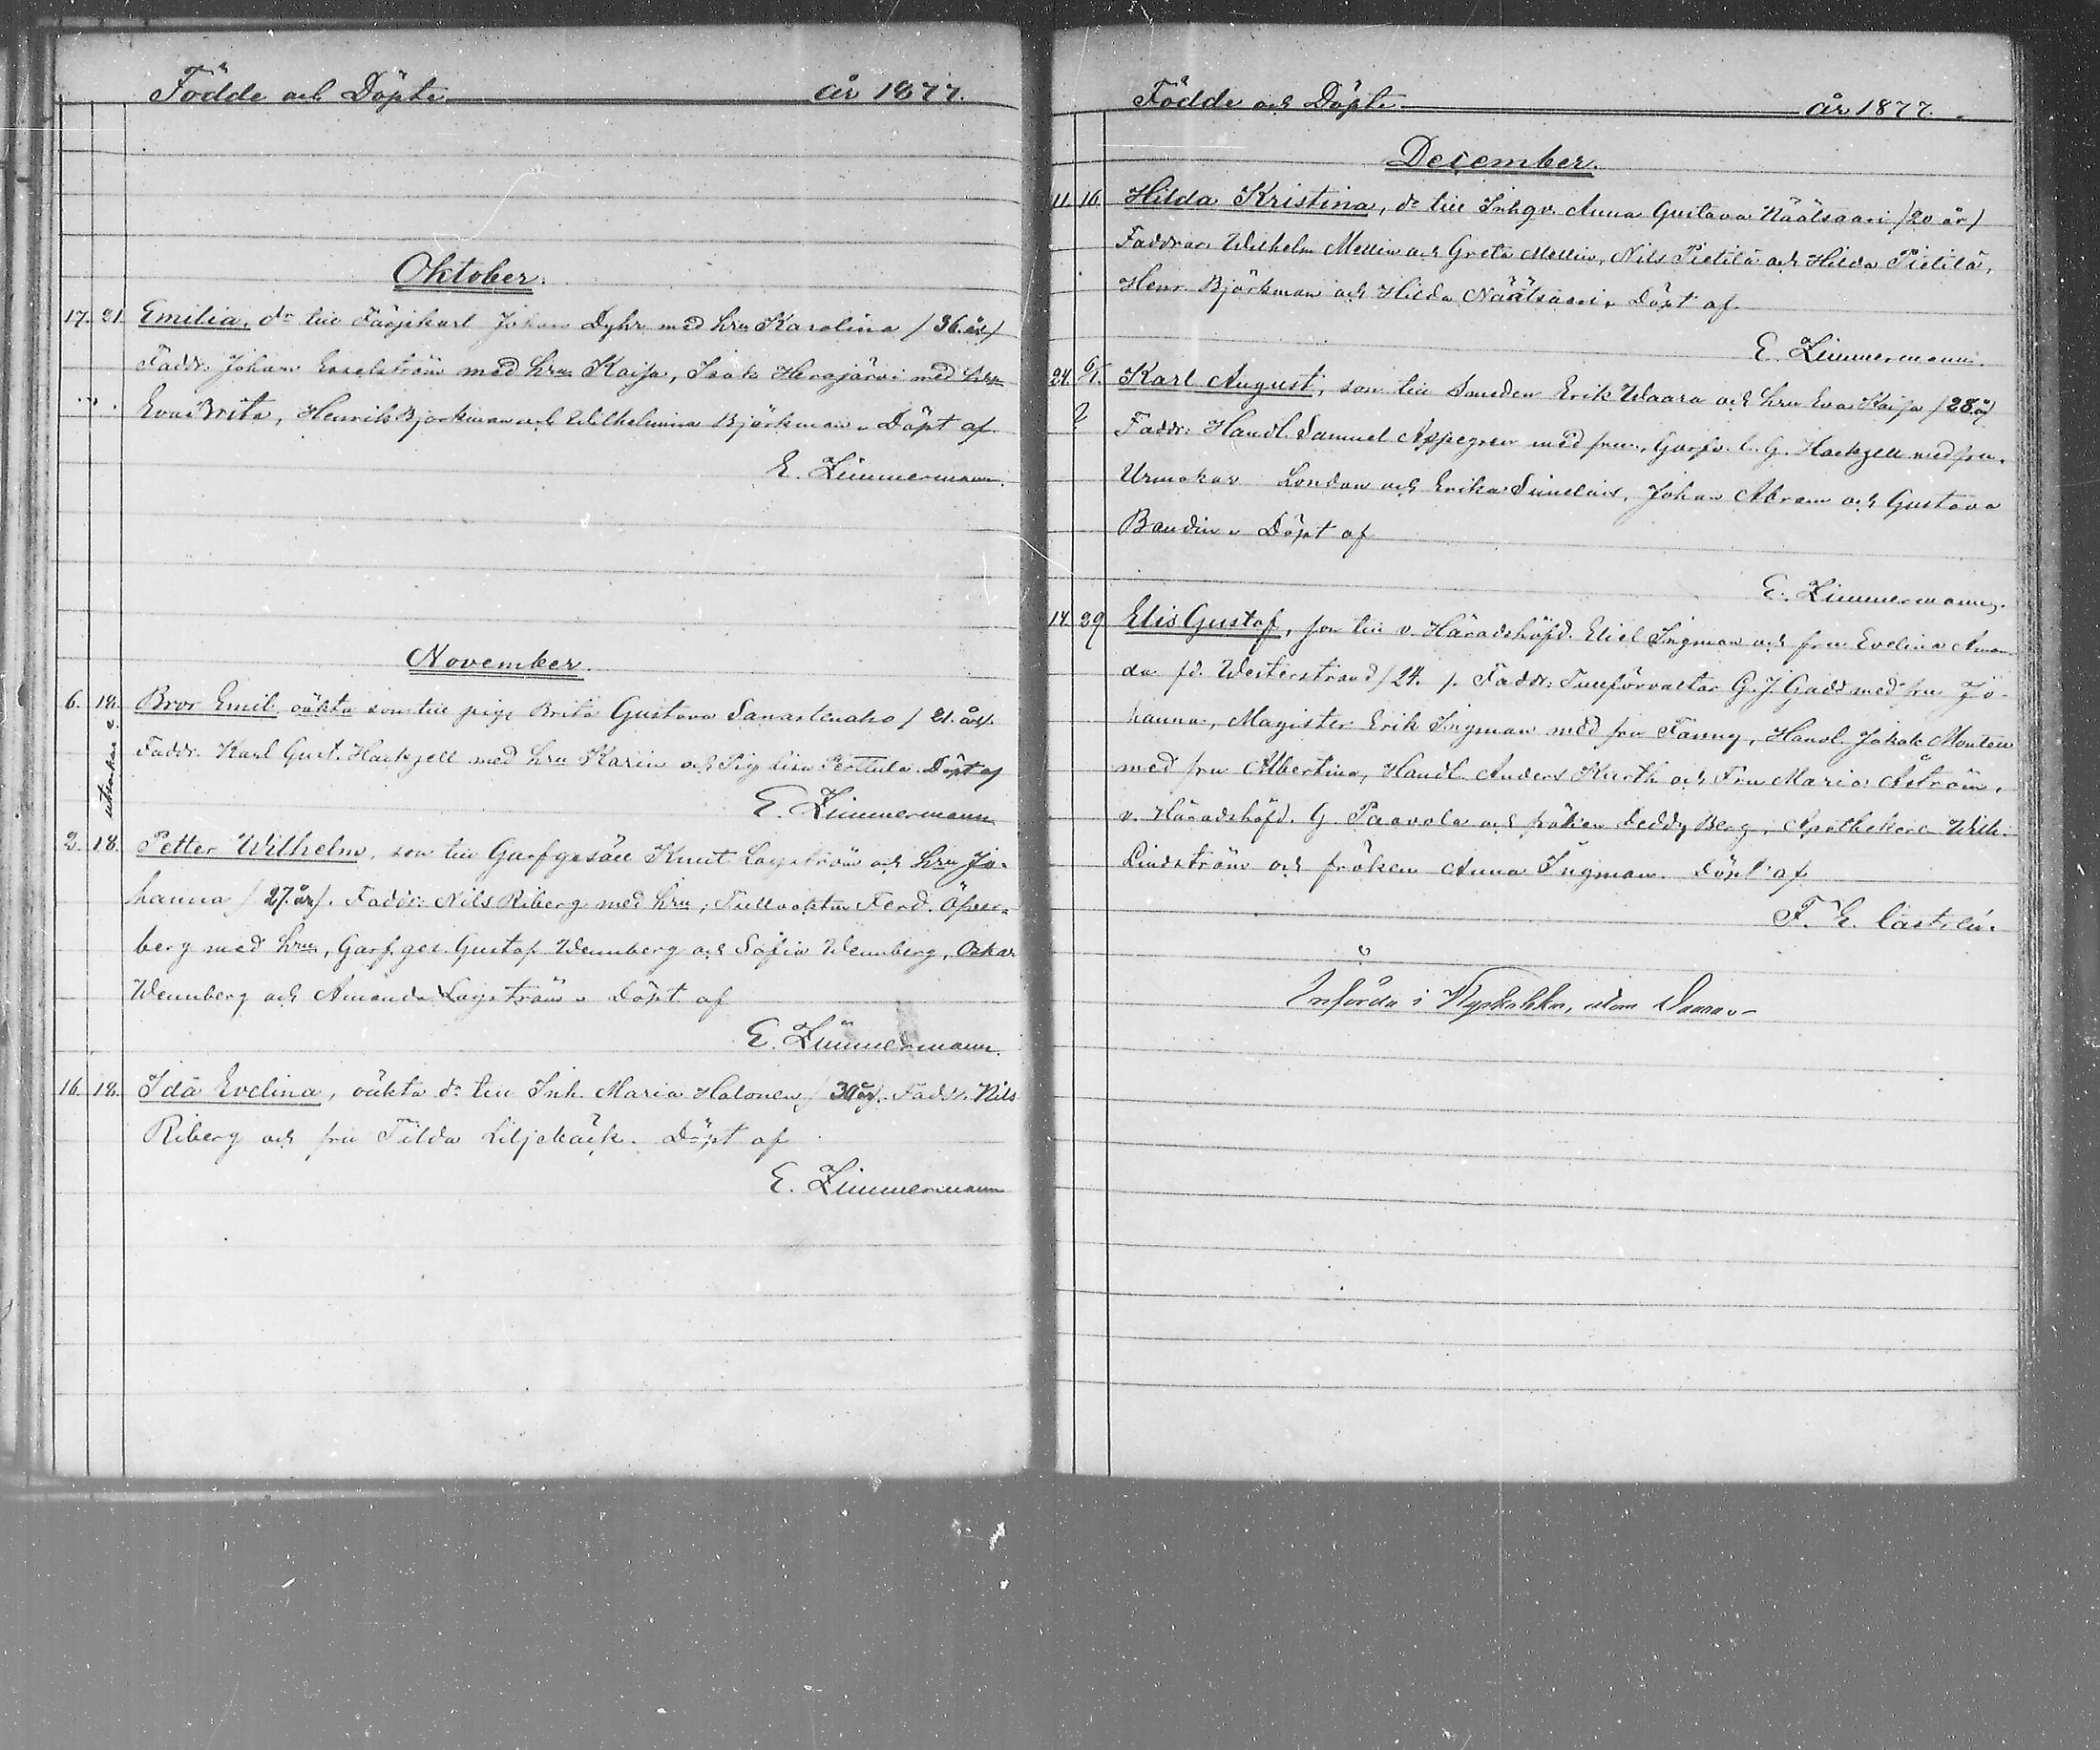 Födde och Döpte år 1877.
Oktober.
17. 21 Emilia, dr till Färjekarl Johan Dyhr med hru Karolina /36 år/
Faddr. Johan Engelström med hru Kaisa, Isak Herajärvi med hru
Eva Brita, Henrik Björkman och Wilhelmina Björkman. Döpt af
E. Zimmermann.
November.
6. 18. Bror Emil, oäkta son till pig. Brita Gustava Sanastenaho /21 år/.
Faddr. Karl Gust. Hackzell med hru Karin och Pig Lisa Perttula. Döpt af
E. Zimmermann
2. 18. Petter Wilhelm, son till Garfgesäll Knut Lagström och hru Jo-
hanna /27 år/. Faddr: Nils Riberg med hru, Tullvakten Ferd. Öfver-
berg med hru, Garf. ges. Gustaf Wennberg och Sofia Wennberg, Oskar
Wennberg och Amanda Lagström. Döpt af
E. Zimmermann.
16. 18. Ida Evelina, oäkta dr till Inh. Maria Halonen /30 år/. Faddr. Nils
Riberg och fru Tilda Liljebäck. Döpt af
E. Zimmermann
Födde och Döpte år 1877.
December.
11. 16. Hilda Kristina, dr till Inhqv. Anna Gustava Näätsaari /20 år/
Faddrar. Wilhelm Mellin och Greta Mellin, Nils Pietilä och Hilda Pietilä,
Henr. Björkman och Hilda Näätsaari. Döpt af
E. Zimmermann.
24 Karl August, son till Smeden Erik Waara och hru Eva Kaisa /28 år/
Faddr: Handl. Samuel Appegren med fru, Garfv. C. G. Hackzell med fru,
Urmakar London och Erika Simelius, Johan Abram och Gustava
Baudin. Döpt af
E. Zimmermann.
14. 29 Elis Gustaf, son till v. Häradshöfd. Eliel Ingman och fru Evelina Aman-
da fd. Westerstrand /24. /. Faddr: Tullförvaltar G. J. Gadd med fru Jo-
hanna, Magister Erik Ingman med fru Fanny, Handl. Jakob Montell
med fru Albertina, Handl. Anders Kurth och Fru Maria Åström,
v. Häradshöfd. G. Paavola och fröken Deddy Berg, Apothekare Wilh.
Lindström och fröken Anna Ingman. Döpt af
F. E. Castrén.
Införda i Kyrkobkn, utom Waara